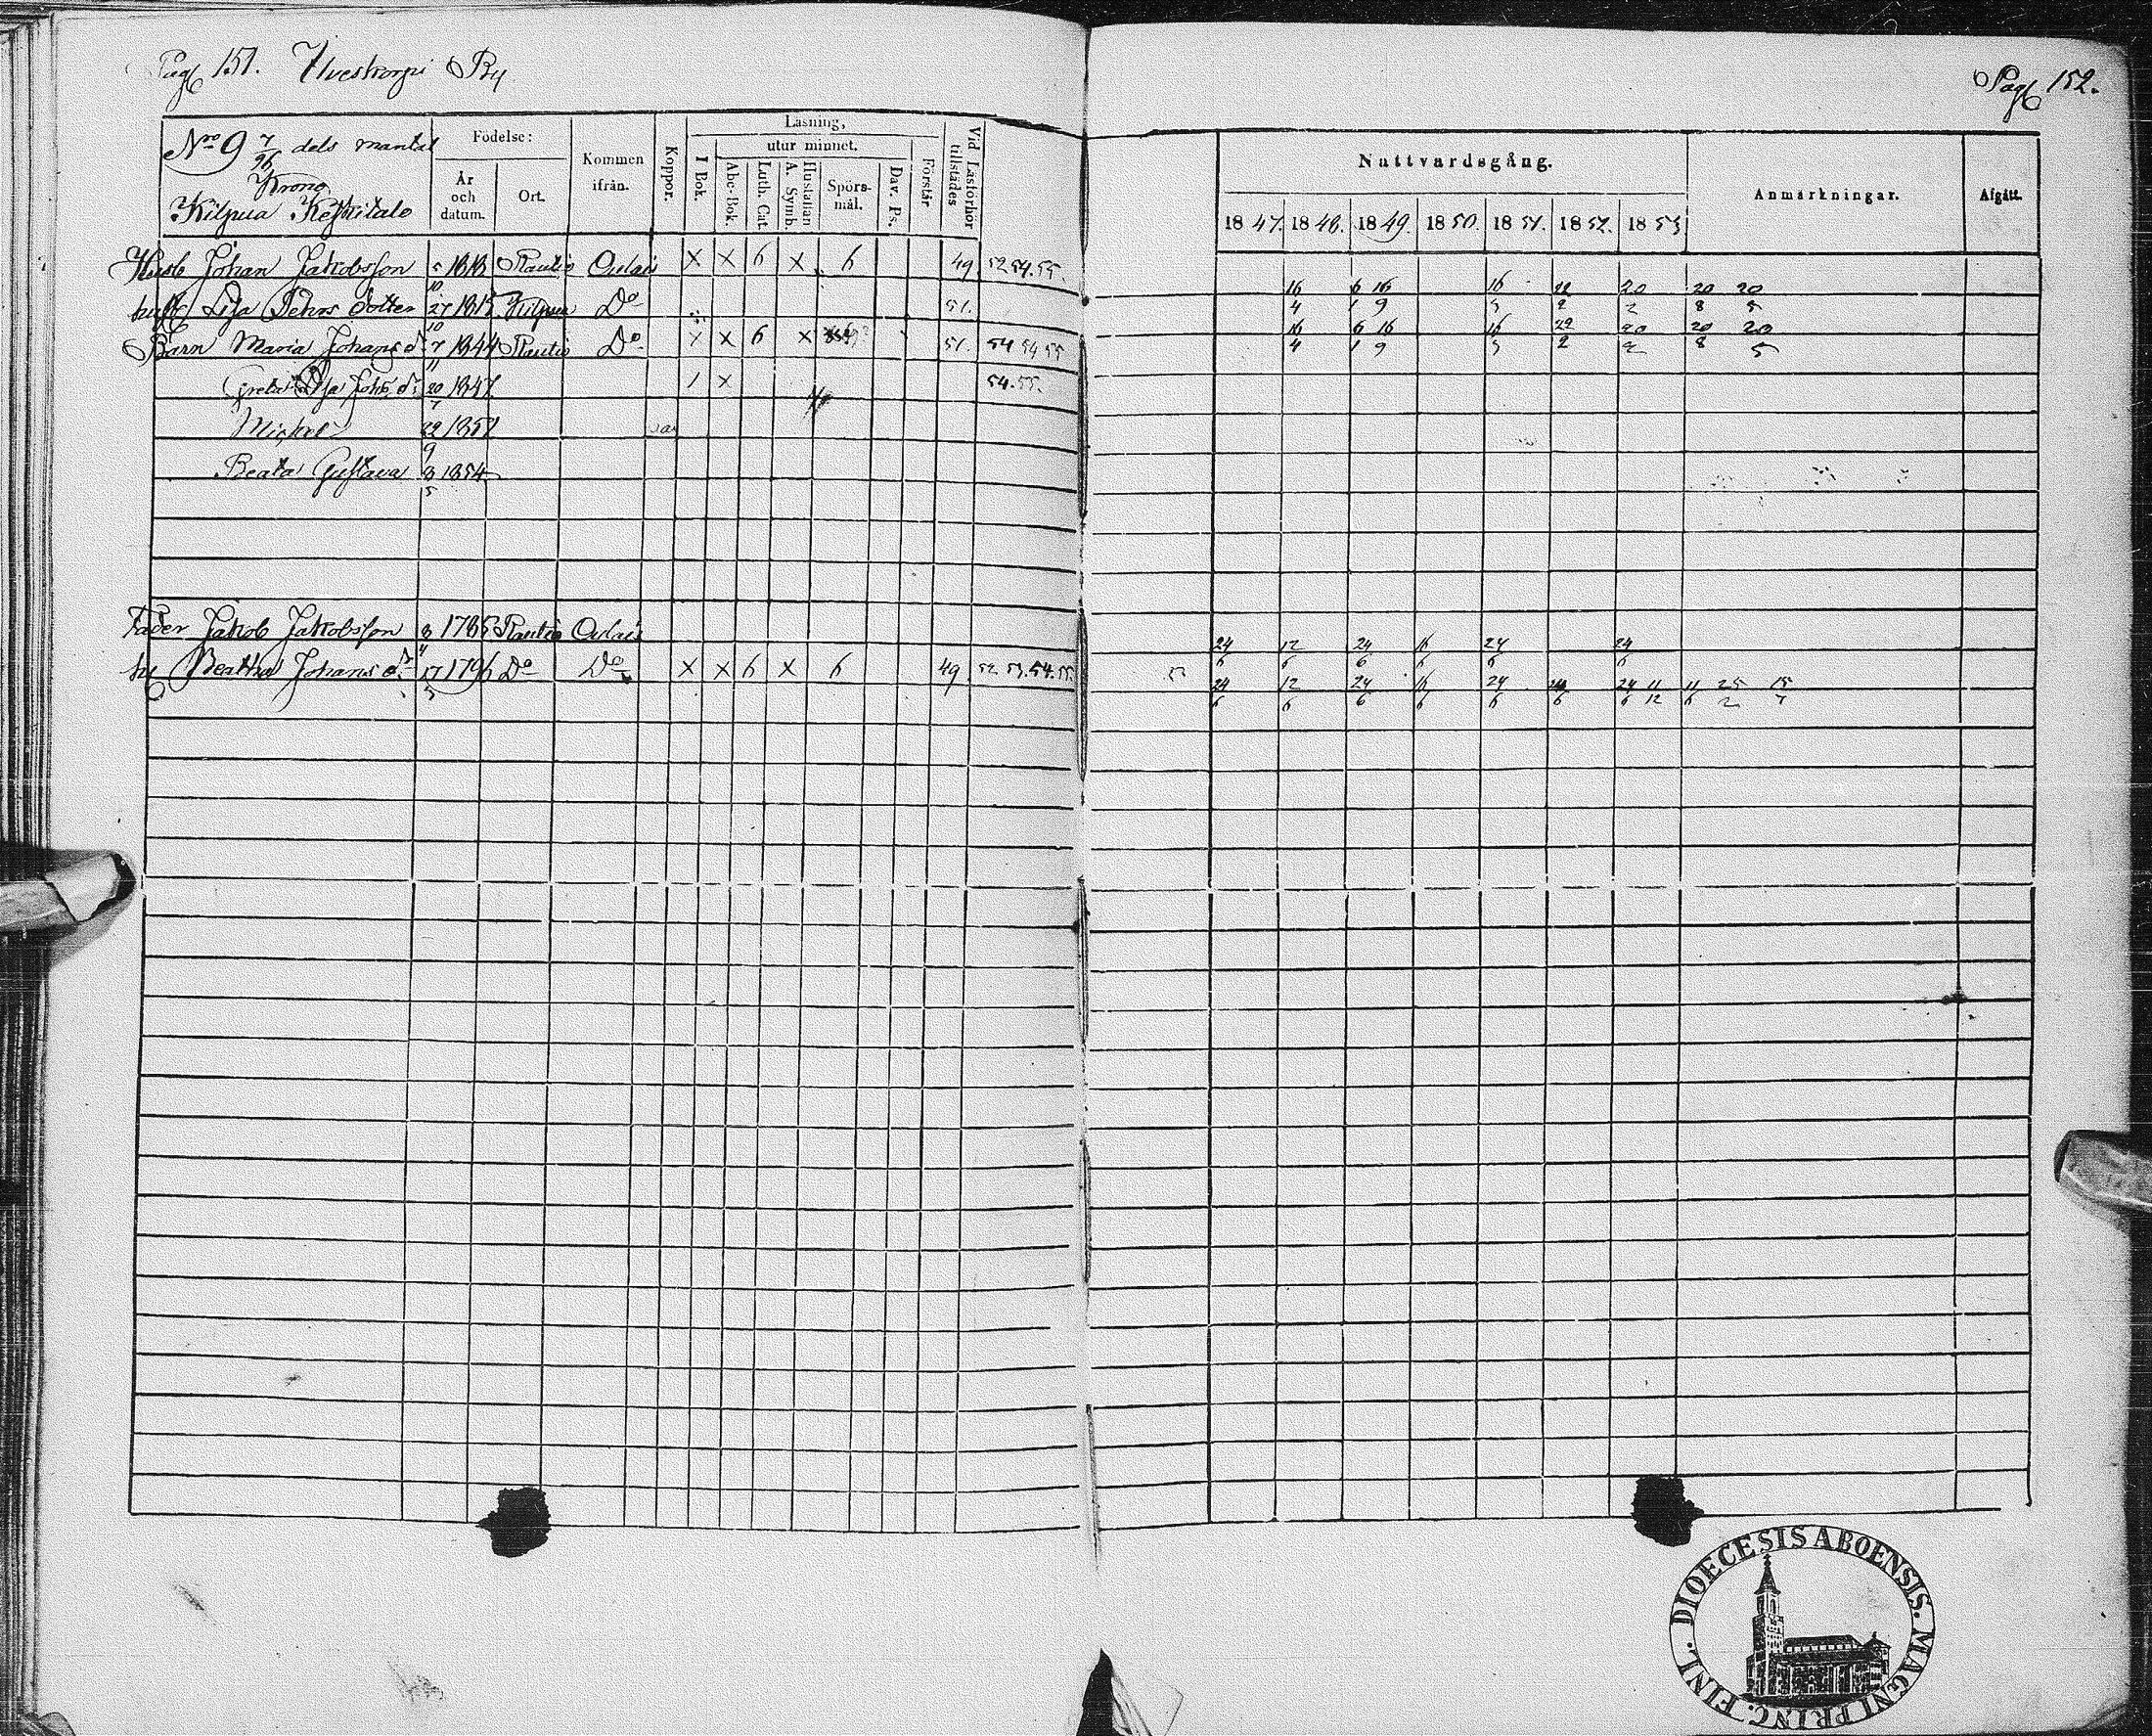 Pag 151. Ylveskorpi By
Pag 152.
No 9 7/96 dels mantal
Krono
Kilpua Keskitalo
Födelse:
År och datum.
Ort.
Kommen ifrån.
Koppor.
Läsning,
I Bok.
utur minnet.
Abc-Bok.
Luth. Cat.
Hustaflan A. Symb.
Spörs-mål.
Dav. Ps.
Förstår
Vid Läsförhör tillstädes
Nattvardsgång.
1847. 1848. 1849. 1850. 1851. 1852. 1853
Anmärkningar.
Afgått.
Husb Johan Jakobsson 5/10 1818 Rautio Oulais X X 6 X 6 49. 52 54. 55. 16/4 6/1 16/9 16/5 22/2 20/2 20/8 20/5
hust Lisa Pehrs dotter 27/10 Kilpua Do 51. 16/4 6/1 16/9 16/5 22/2 20/2 20/8 20/5
Barn Maria Johans dr 7/11 1844 Rautio Do X X 6 X 51. 54 55
Greta Lisa Johs. dr 20/7 1847. / X 54. 55.
Michel 22/9 1851
Beata Gustava 3/5 1854
Fader Jakob Jakobsson 8/4 Rautio Oulais 24/6 12/6 24/6 16/6 24/6 24/6
hu Beatha Johans dr 17/5 1796 Do Do X X 6 X 6 49. 52. 53. 54. 55. 24/6 12/6 24/6 16/6 24/6 24/6 24/6 11/12 11/6 25/2 15/7
DIOECESIS ABOENSIS. MAGNI PRINC. FINL.